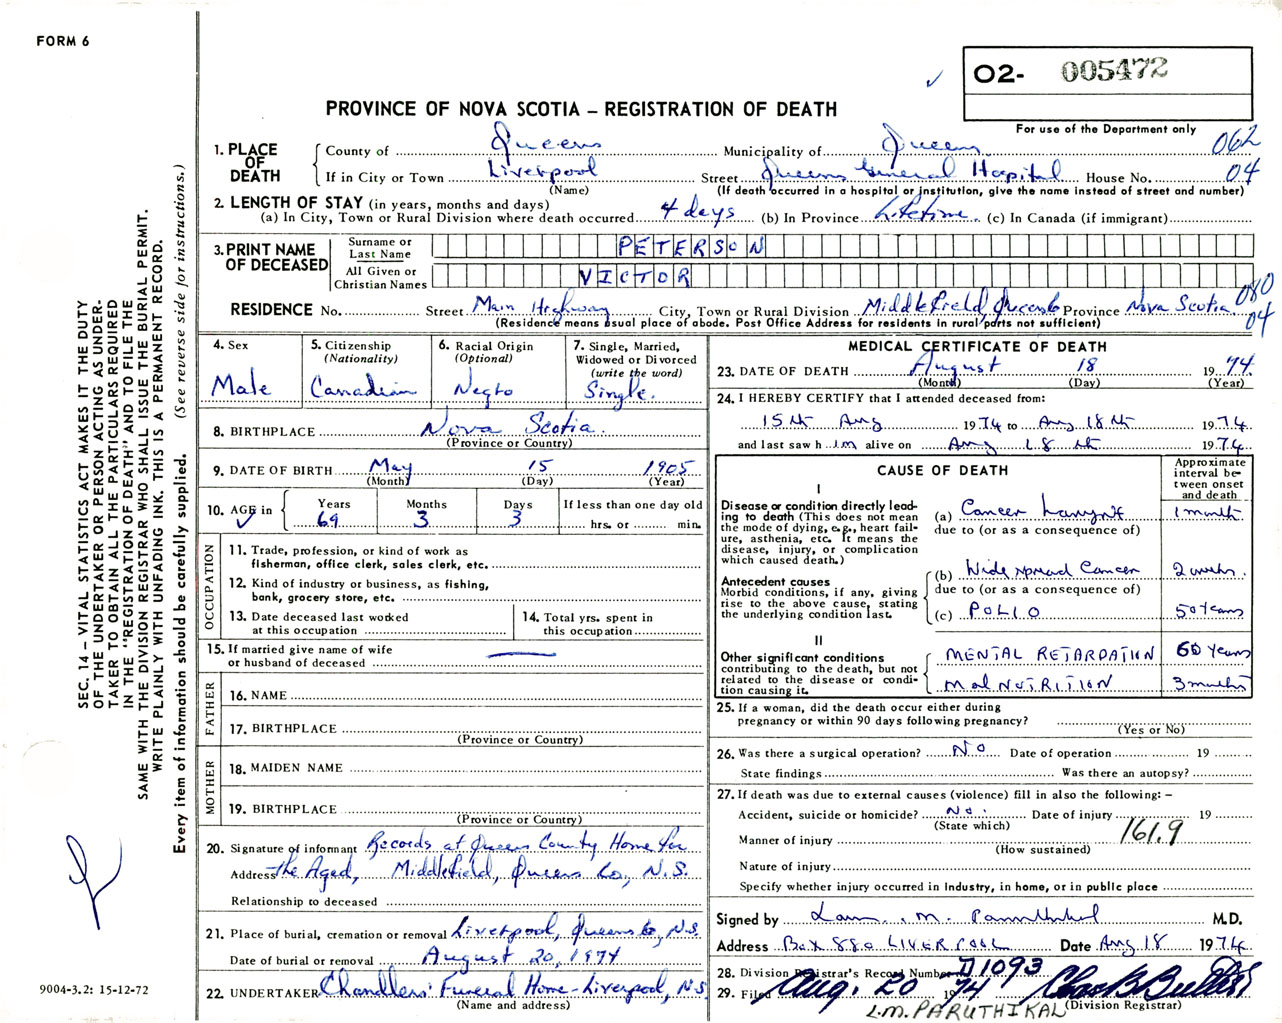 FORM 6
O2- 005472
For use of the Department only
PROVINCE OF NOVA SCOTIA – REGISTRATION OF DEATH
1. PLACE OF DEATH
County of Queens Municipality of Queens 062
If in City or Town Liverpool Street Queens General Hospital House No. 04
(Name) (If death occurred in a hospital or institution, give the name instead of street and number)
2. LENGTH OF STAY (in years, months and days)
(a) In City, Town or Rural Division where death occurred 4 days (b) In Province Lifetime (c) In Canada (if immigrant)
3. PRINT NAME OF DECEASED
Surname or Last Name PETERSON
All Given or Christian Names VICTOR
RESIDENCE No. Street Main Highway City, Town or Rural Division Middlefield, Queens Co Province Nova Scotia 080 04
(Residence means usual place of abode. Post Office Address for residents in rural parts not sufficient)
4. Sex Male
5. Citizenship (Nationality) Canadian
6. Racial Origin (Optional) Negro
7. Single, Married, Widowed or Divorced (write the word) Single.
8. BIRTHPLACE Nova Scotia.
(Province or Country)
9. DATE OF BIRTH May 15 1905
(Month) (Day) (Year)
10. AGE in Years 69 Months 3 Days 3 If less than one day old hrs. or min.
OCCUPATION
11. Trade, profession, or kind of work as fisherman, office clerk, sales clerk, etc.
12. Kind of industry or business, as fishing, bank, grocery store, etc.
13. Date deceased last worked at this occupation
14. Total yrs. spent in this occupation
15. If married give name of wife or husband of deceased
FATHER
16. NAME
17. BIRTHPLACE
(Province or Country)
MOTHER
18. MAIDEN NAME
19. BIRTHPLACE
(Province or Country)
20. Signature of informant Records at Queens County Home for
Address the Aged, Middlefield, Queens Co., N.S.
Relationship to deceased
21. Place of burial, cremation or removal Liverpool, Queens Co, N.S.
Date of burial or removal August 20, 1974
22. UNDERTAKER Chandlers' Funeral Home - Liverpool, N.S
(Name and address)
MEDICAL CERTIFICATE OF DEATH
23. DATE OF DEATH August 18 1974.
(Month) (Day) (Year)
24. I HEREBY CERTIFY that I attended deceased from:
15th Aug 1974 to Aug 18th 1974
and last saw him alive on Aug 18th 1974
CAUSE OF DEATH
Approximate interval between onset and death
I
Disease or condition directly leading to death (This does not mean the mode of dying, e.g., heart failure, asthenia, etc. It means the disease, injury, or complication which caused death.)
(a) Cancer Larynx 1 month
due to (or as a consequence of)
Antecedent causes
Morbid conditions, if any, giving rise to the above cause, stating the underlying condition last.
(b) Wide spread Cancer 2 weeks.
due to (or as a consequence of)
(c) POLIO 50 Years
II
Other significant conditions contributing to the death, but not related to the disease or condition causing it.
MENTAL RETARDATION 60 Years
MalNUTRITION 3 months
25. If a woman, did the death occur either during pregnancy or within 90 days following pregnancy?
(Yes or No)
26. Was there a surgical operation? No Date of operation 19
State findings Was there an autopsy?
27. If death was due to external causes (violence) fill in also the following: –
Accident, suicide or homicide? No. Date of injury 19
(State which)
Manner of injury 161.9
(How sustained)
Nature of injury
Specify whether injury occurred in Industry, in home, or in public place
Signed by M.D.
Address Box 880 LIVERPOOL Date Aug 18 1974
28. Division Registrar's Record Number 71093
29. Filed Aug. 20 1974
(Division Registrar)
L.M. PARUTHIKAL
SEC. 14 – VITAL STATISTICS ACT MAKES IT THE DUTY
OF THE UNDERTAKER OR PERSON ACTING AS UNDER-
TAKER TO OBTAIN ALL THE PARTICULARS REQUIRED
IN THE "REGISTRATION OF DEATH" AND TO FILE THE
SAME WITH THE DIVISION REGISTRAR WHO SHALL ISSUE THE BURIAL PERMIT.
WRITE PLAINLY WITH UNFADING INK. THIS IS A PERMANENT RECORD.
Every item of information should be carefully supplied. (See reverse side for instructions.)
9004-3.2: 15-12-72